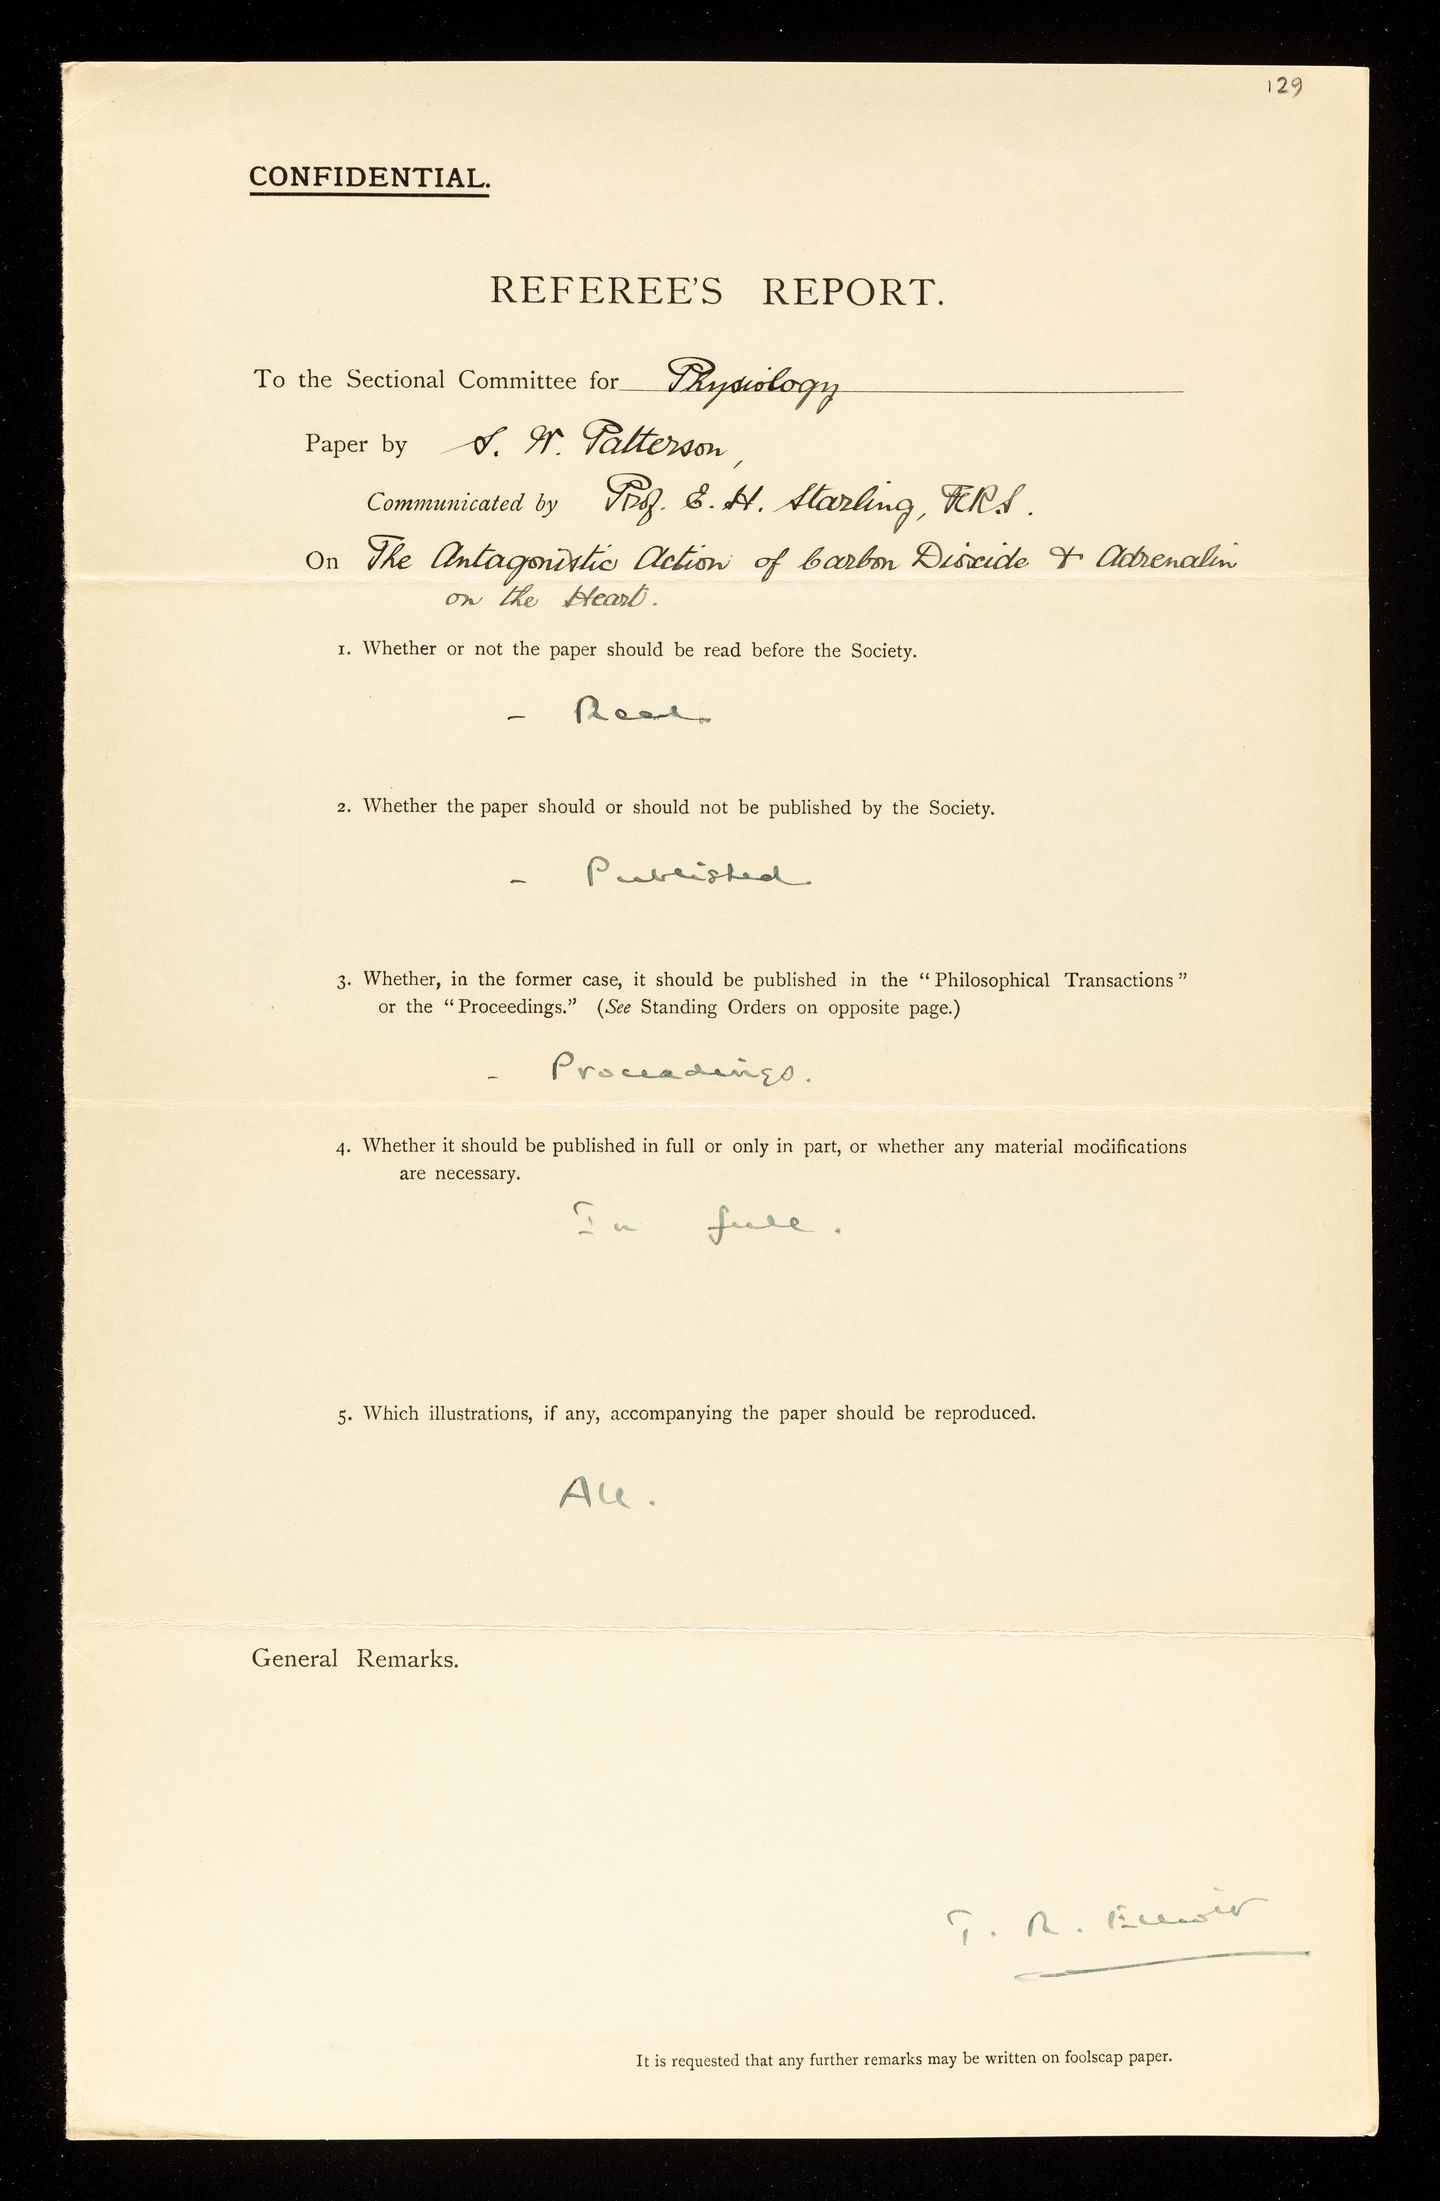 129
CONFIDENTIAL.
REFEREE'S REPORT.
To the Sectional Committee for Physiology
Paper by S. W. Patterson,
Communicated by Prof. E. H. Starling, F.R.S.
On The Antagonistic Action of Carbon Dioxide & Adrenalin
on the Heart.
1. Whether or not the paper should be read before the Society.
– Read.
2. Whether the paper should or should not be published by the Society.
– Published.
3. Whether, in the former case, it should be published in the “Philosophical Transactions”
or the “Proceedings.” (See Standing Orders on opposite page.)
– Proceedings.
4. Whether it should be published in full or only in part, or whether any material modifications
are necessary.
In full.
5. Which illustrations, if any, accompanying the paper should be reproduced.
All.
General Remarks.
T. R. Elliott
It is requested that any further remarks may be written on foolscap paper.